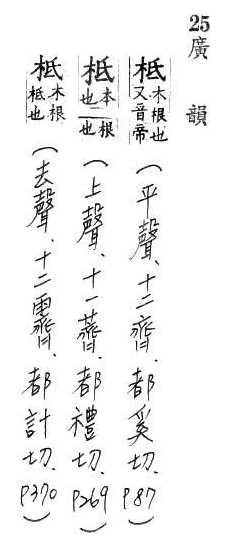 25廣韻
柢木根也又音帝(平聲、十二齊、都奚切、P87)
柢本也根也(上聲、十一薺、都禮切、P269)
柢木根柢也(去聲、十二霽、都計切、P370)